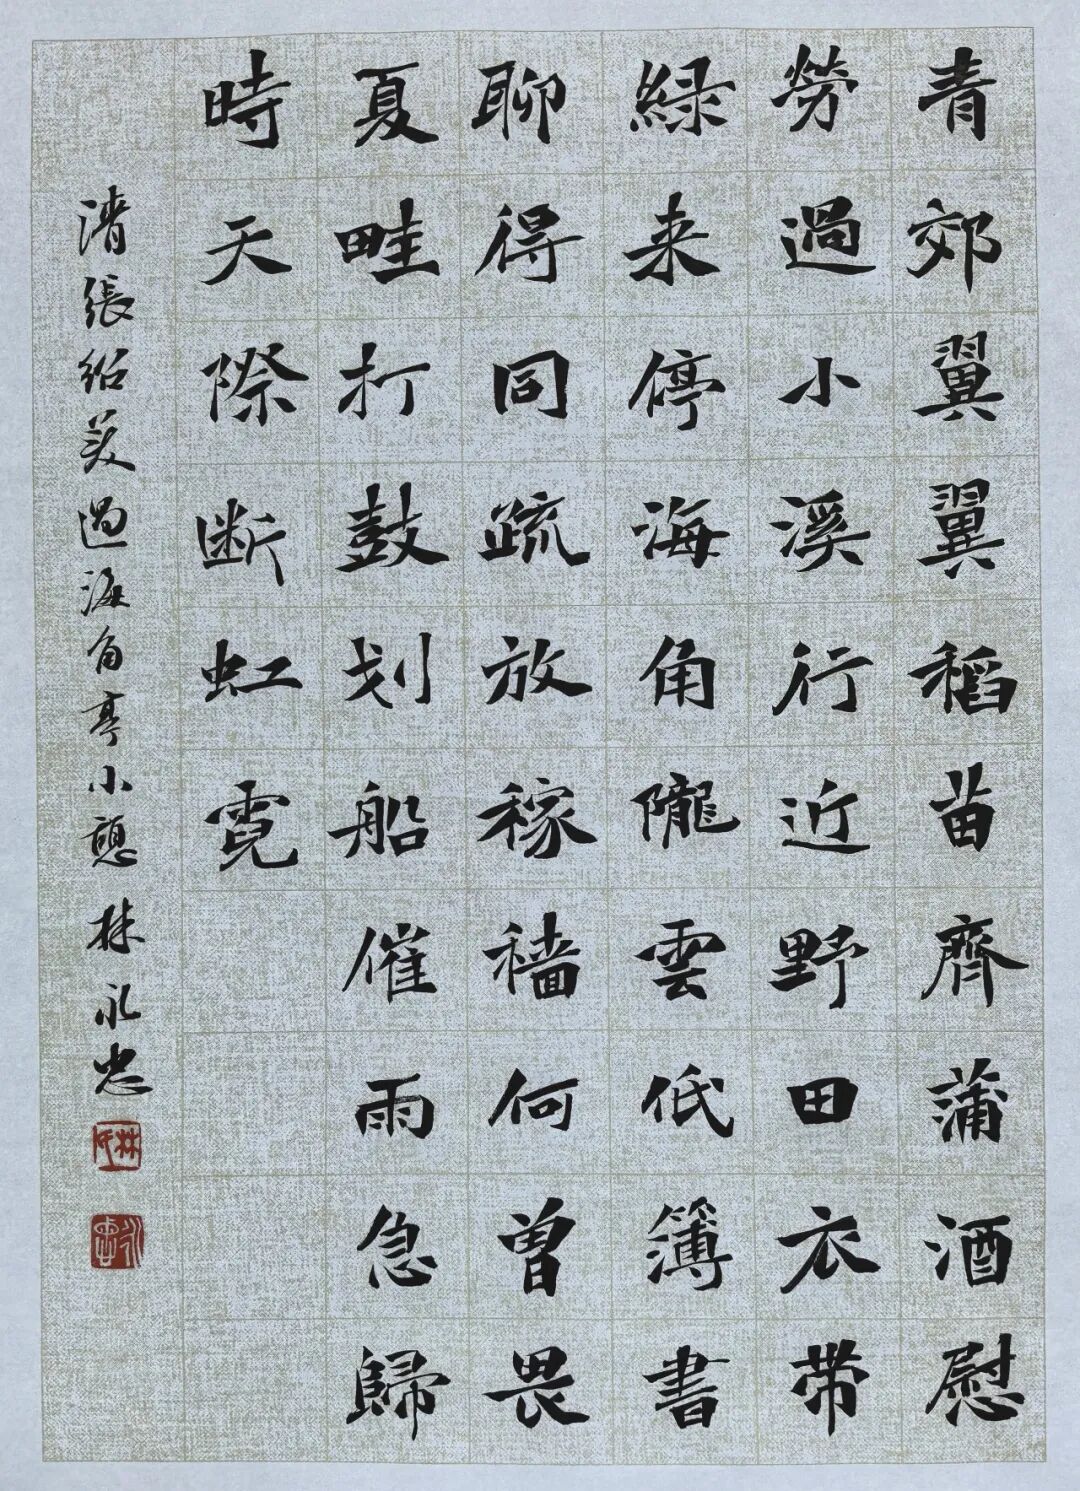 青郊翼翼稻苗齊蒲酒慰
勞過小溪行近野田衣帶
緑来停海角隴雲低簿書
聊得同疏放稼穡何曾畏
夏畦打鼓划船催雨急歸
時天際断虹霓
清張紹美過海角亭小憩 林永忠
永忠